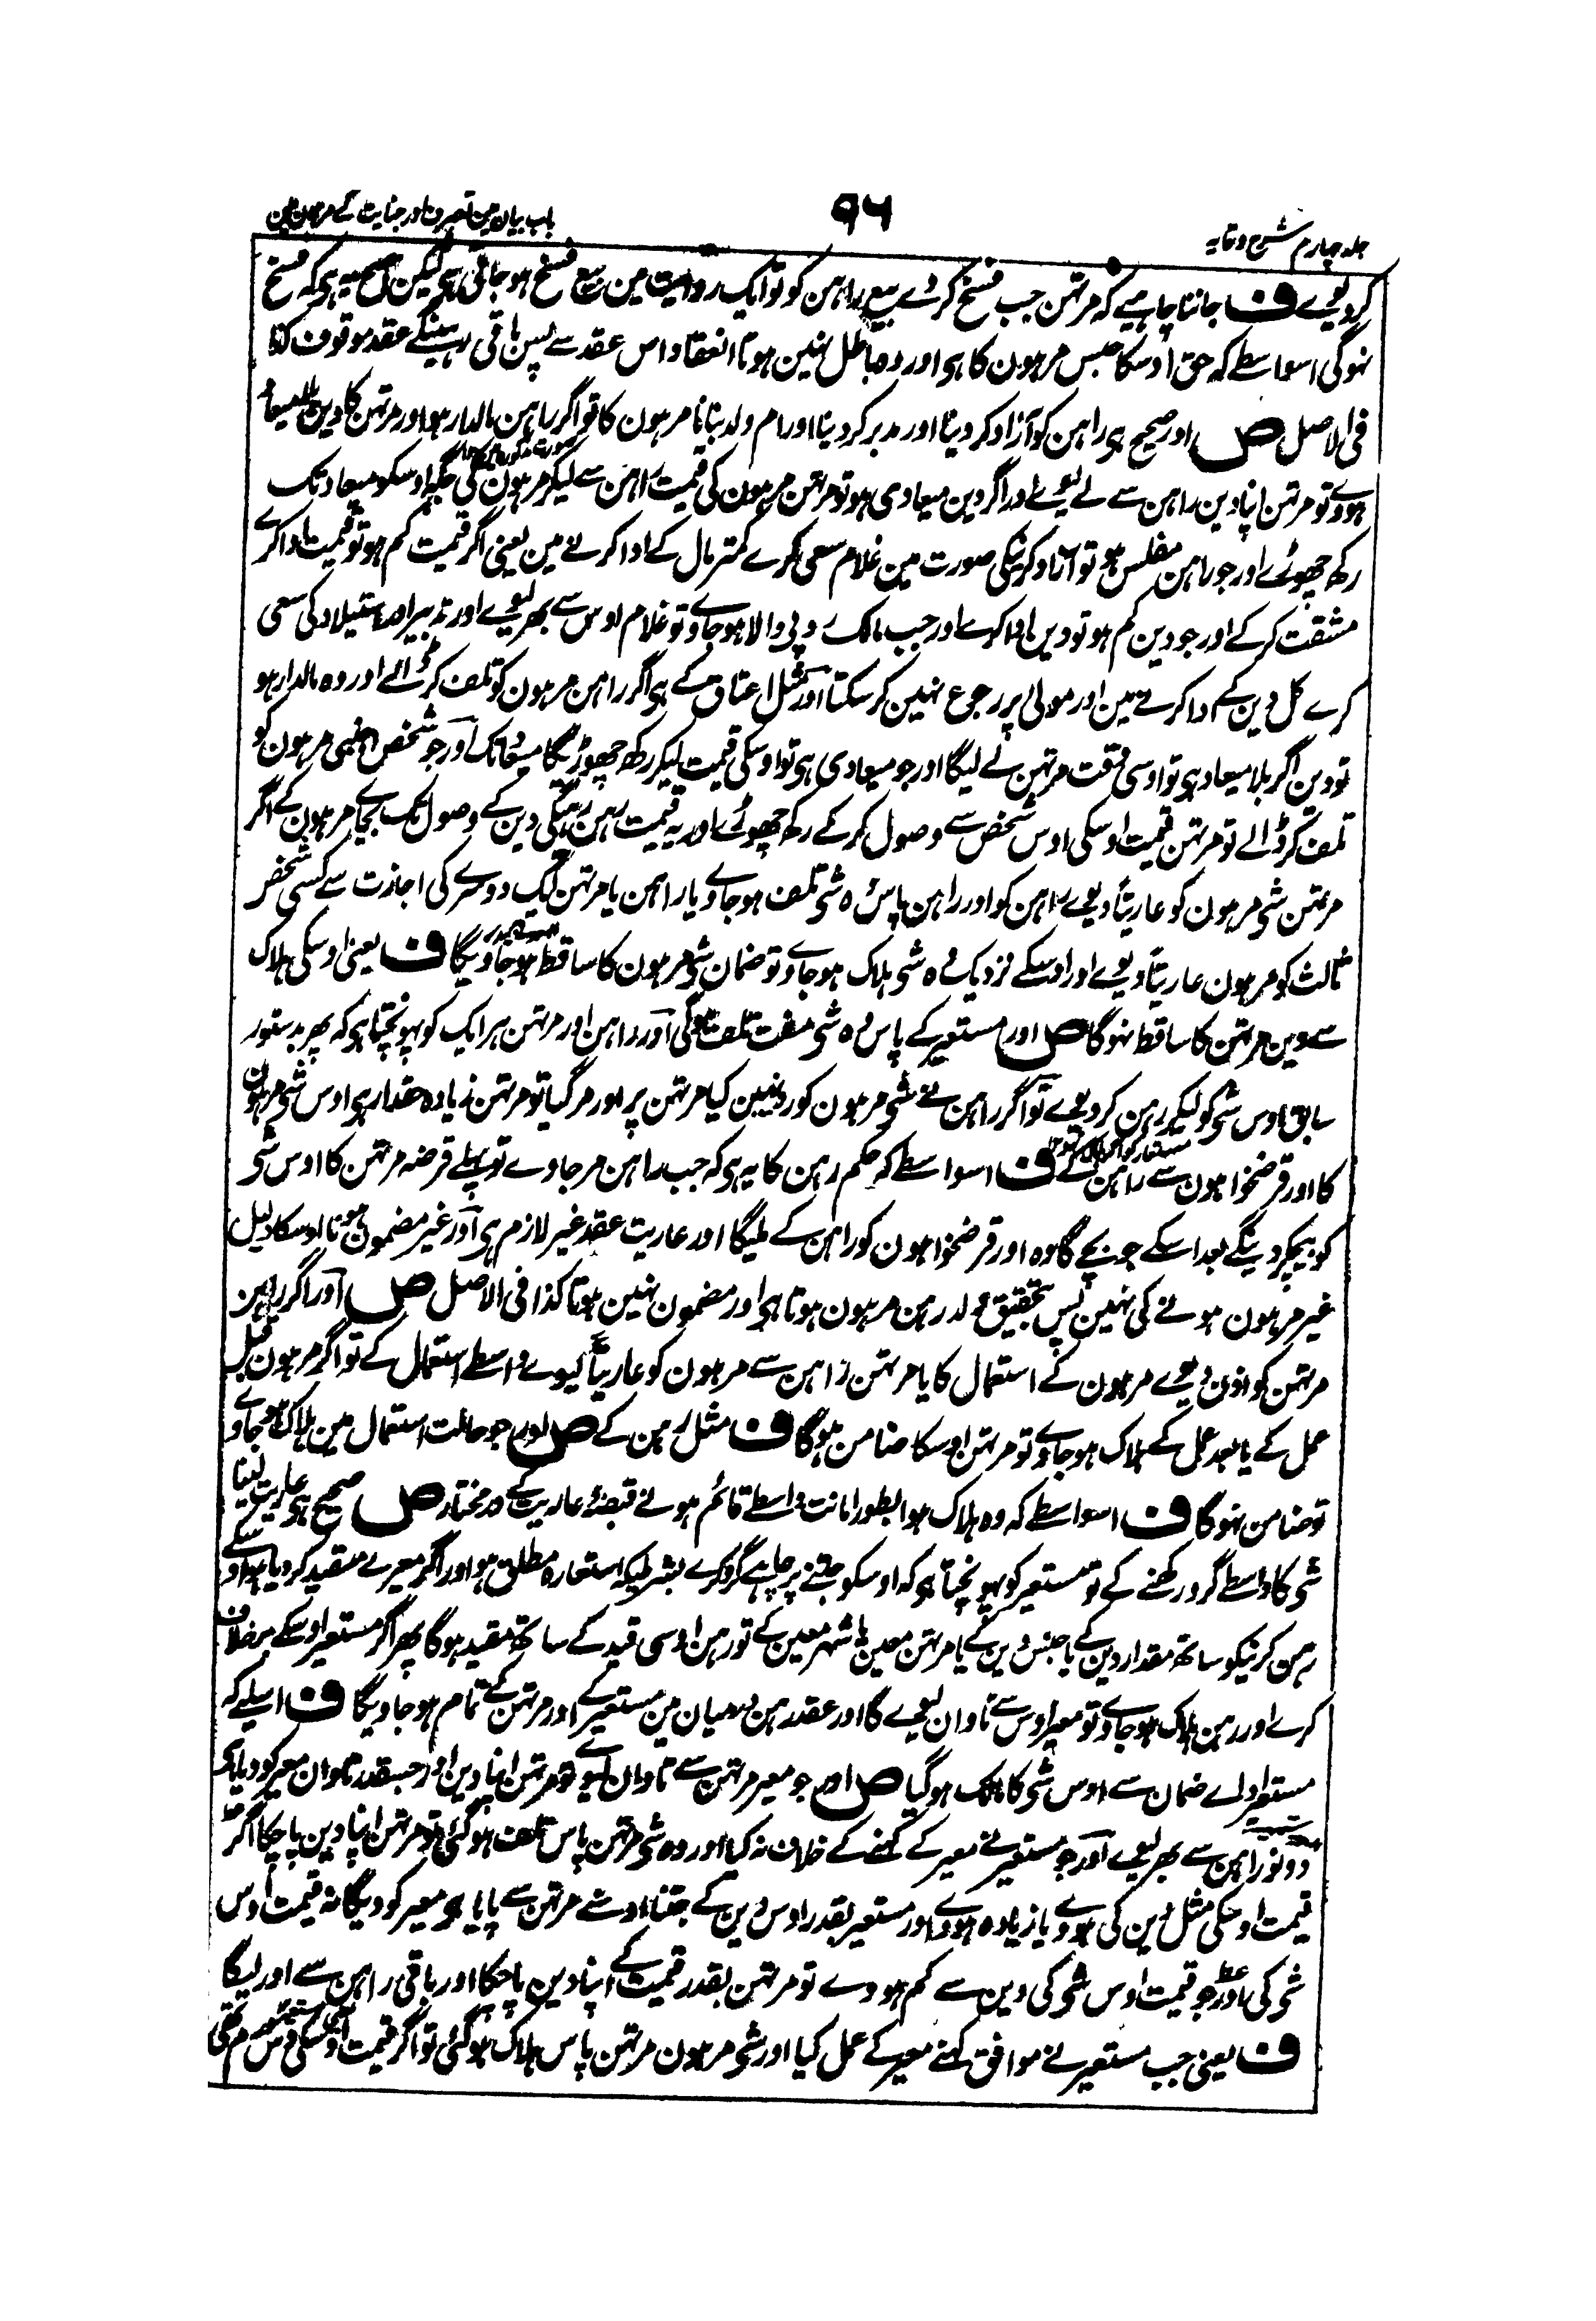 جلد چہارم شرح وقایہ
۹۶
باب بیان مین تصرف اور جنایت کے مرہون مین
کر دیوے ف جاننا چاہیے کہ مرتہن جب فسخ کر دے بیع راہن کو تو ایک روایت مین بیع فسخ ہو جاتی ہی لیکن صحیح یہ ہی کہ فسخ
نہوگی اسواسطے کہ حق اوسکا حبس مرہون کا ہی اور وہ باطل نہین ہوتا انعقاد اس عقد سے پس باقی رہینگے عقد موقوف کذا
فی الاصل ص اور صحیح ہی راہن کو آزاد کر دینا اور مدبر کر دینا اور ام ولد بنانا مرہون کا تو اگر راہن مالدار ہو اور مرتہن کا دین بلا میعاد
ہووے تو مرتہن اپنا دین راہن سے لے لیوے اور اگر دین میعادی ہو تو مرتہن مرہون کی قیمت راہن سے لیکر مرہون کی جگہ اوسکو میعاد تک
رکھ چھوڑے اور جو راہن مفلس ہو تو آزاد کرنیکی صورت مین غلام سعی کرے کمتر مال کے ادا کرنے مین یعنی اگر قیمت کم ہو تو قیمت ادا کرے
مشقت کر کے اور جو دین کم ہو تو دین ادا کرے اور جب مالک روپی والا ہو جاوے تو غلام اوس سے بھر لیوے اور تدبیر اور استیلاد کی سعی
کرے کل دین کے ادا کرنے مین اور مولی پر رجوع نہین کر سکتا اور مثل اعتاق کے ہی اگر راہن مرہون کو تلف کر ڈالے اور وہ مالدار ہو
تو دین اگر بلا میعاد ہو تو اوسی وقت مرتہن لے لیگا اور جو میعادی ہی تو اوسکی قیمت لیکر رکھ چھوڑیگا میعاد تک اور جو شخص اجنبی مرہون کو
تلف کر ڈالے تو مرتہن قیمت اوسکی اوس شخص سے وصول کر کے رکھ چھوڑے اور یہ قیمت رہن رہیگی دین کے وصول تک بجاے مرہون کے اگر
مرتہن شی مرہون کو عاریتاً دیوے راہن کو اور راہن پاس وہ شی تلف ہو جاوے یا راہن یا مرتہن ایک دوسرے کی اجازت سے کسی شخص
ثالث کو مرہون عاریتاً دیوے اور اوسکے نزدیک وہ شی ہلاک ہو جاوے تو ضمان شی مرہون کا ساقط ہو جاویگا ف یعنی اوسکی ہلاک
سے دین مرتہن کا ساقط نہوگا ص اور مستعیر کے پاس وہ شی مفت تلف ہوگی اور راہن اور مرتہن ہر ایک کو پہونچتا ہی کہ پھر بدستور
سابق اوس شی کو لیکر رہن کر دیوے تو اگر راہن نے شی مرہون کو رد نہین کیا مرتہن پر اور مر گیا تو مرتہن زیادہ حقدار ہی اوس شی مرہون
کا اور قرضخواہون سے راہن کے ف اسواسطے کہ حکم رہن کا یہ ہی کہ جب راہن مر جاوے تو پہلے قرضہ مرتہن کا اوس شی
کو بیچکر دینگے بعد اسکے جو بچے گا وہ اور قرضخواہون کو راہن کے ملیگا اور عاریت عقد غیر لازم ہی اور غیر مضمون ہونا اوسکا دلیل
غیر مرہون ہونے کی نہین پس تحقیق ولد رہن مرہون ہوتا ہی اور مضمون نہین ہوتا کذا فی الاصل ص اور اگر راہن
مرتہن کو اذن دیوے مرہون کے استعمال کا یا مرتہن راہن سے مرہون کو عاریتاً لیوے واسطے استعمال کے تو اگر مرہون قبل
عمل کے یا بعد عمل کے ہلاک ہو جاوے تو مرتہن اوسکا ضامن ہوگا ف مثل رہن کے ص اور جو حالت استعمال مین ہلاک ہو جاوے
تو ضامن نہوگا ف اسواسطے کہ وہ ہلاک ہوا بطور امانت واسطے قائم ہونے قبضۂ عاریت کے در مختار ص صحیح ہی عاریت لینا
شی کا واسطے گرو رکھنے کے تو مستعیر کو پہونچتا ہی کہ اوسکو جتنے پر چاہے گرو کرے بشرطیکہ استعارہ مطلق ہو اور اگر معیر نے مقید کر دیا ہو اوسکے
رہن کرنیکو ساتھ مقدار دین کے یا جنس دین کے یا مرتہن معین یا شہر معین کے تو رہن اوسی قید کے ساتھ مقید ہوگا پھر اگر مستعیر اوسکے برخلاف
کرے اور رہن ہلاک ہو جاوے تو معیر اوس سے تاوان لیوے گا اور عقد رہن درمیان مین مستعیر کے اور مرتہن کے تمام ہو جاویگا ف اسلیے کہ
مستعیر اداے ضمان سے اوس شی کا مالک ہو گیا ص اور جو معیر مرتہن سے تاوان لیوے تو مرتہن اپنا دین اور جسقدر تاوان معیر کو دیا ہی
دونو راہن سے بھر لیوے اور جو مستعیر نے معیر کے کہنے کے خلاف نہ کیا اور وہ شی مرتہن پاس تلف ہو گئی تو مرتہن اپنا دین پا چکا اگر
قیمت اوسکی مثل دین کی ہووے یا زیادہ ہووے اور مستعیر بقدر اوس دین کے جتنا اوسنے مرتہن سے پایا ہی معیر کو دیگا نہ قیمت اوس
شی کی اور جو قیمت اوس شی کی دین سے کم ہووے تو مرتہن بقدر قیمت کے اپنا دین پا چکا اور باقی راہن سے اور لیگا
ف یعنی جب مستعیر نے موافق کہنے معیر کے عمل کیا اور شی مرہون مرتہن پاس ہلاک ہو گئی تو اگر قیمت اوسکی دس درم تھی